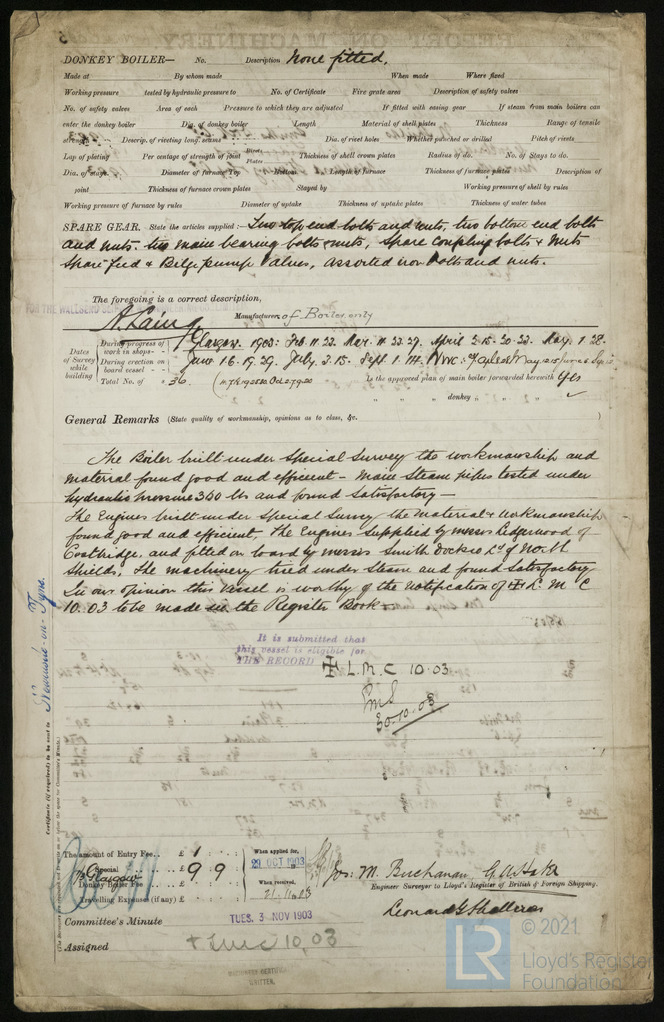 DONKEY BOILER— No. Description None fitted.
Made at By whom made When made Where fixed
Working pressure tested by hydraulic pressure to No. of Certificate Fire grate area Description of safety valves
No. of safety valves Area of each Pressure to which they are adjusted If fitted with easing gear If steam from main boilers can
enter the donkey boiler Dia. of donkey boiler Length Material of shell plates Thickness Range of tensile
strength Descrip. of riveting long. seams Dia. of rivet holes Whether punched or drilled Pitch of rivets
Lap of plating Per centage of strength of joint Rivets Plates Thickness of shell crown plates Radius of do. No. of Stays to do.
Dia. of stays Diameter of furnace Top Bottom Length of furnace Thickness of furnace plates Description of
joint Thickness of furnace crown plates Stayed by Working pressure of shell by rules
Working pressure of furnace by rules Diameter of uptake Thickness of uptake plates Thickness of water tubes
SPARE GEAR. State the articles supplied:— Two top end bolts and nuts, two bottom end bolts
and nuts. two main bearing bolts & nuts, Spare coupling bolts & Nuts
Spare feed & Bilge pump Valves, assorted iron bolts and nuts.
The foregoing is a correct description,
A. Laing Manufacturer of Boiler only
Dates of Survey while building
During progress of work in shops - - Glasgow. 1903: Feb. 11. 23. Mar. 11. 23. 27. April 2. 15. 20. 22. May. 1. 28.
During erection on board vessel - - June 16. 19. 29. July. 3. 15. Sept. 1. 14.
Total No. of 36 Is the approved plan of main boiler forwarded herewith Yes
" " " donkey " " "
General Remarks (State quality of workmanship, opinions as to class, &c.
The Boiler built under Special Survey the workmanship and
material found good and efficient – Main Steam pipes tested under
hydraulic pressure 360 lbs and found Satisfactory —
The Engines built under Special Survey the material & workmanship
found good and efficient, The Engines supplied by messrs Lidgerwood of
Coatbridge, and fitted on board by messrs Smith Docks Co Ld of North
Shields, The machinery tried under Steam and found Satisfactory
In our opinion this Vessel is worthy of the Notification of ✠ L. M C
10.03 to be made in the Register Book.
It is submitted that
this vessel is eligible for
THE RECORD ✠ L.M.C 10.03
30.10.03
Newcastle-on-Tyne
Certificate (if required) to be sent to
The amount of Entry Fee.. £ 1 : : When applied for,
Special £ 9 9 29 OCT 1903
Glasgow
Donkey Boiler Fee £ : : When received,
Travelling Expenses (if any) £ : : 21.11.03
Jos: M. Buchanan
Engineer Surveyor to Lloyd's Register of British & Foreign Shipping.
Leonard G Shallcross
Committee's Minute TUES. 3 NOV 1903
Assigned + LMC 10,03
MACHINERY CERTIFICATE
WRITTEN.
© 2021
LR Lloyd's Register
Foundation